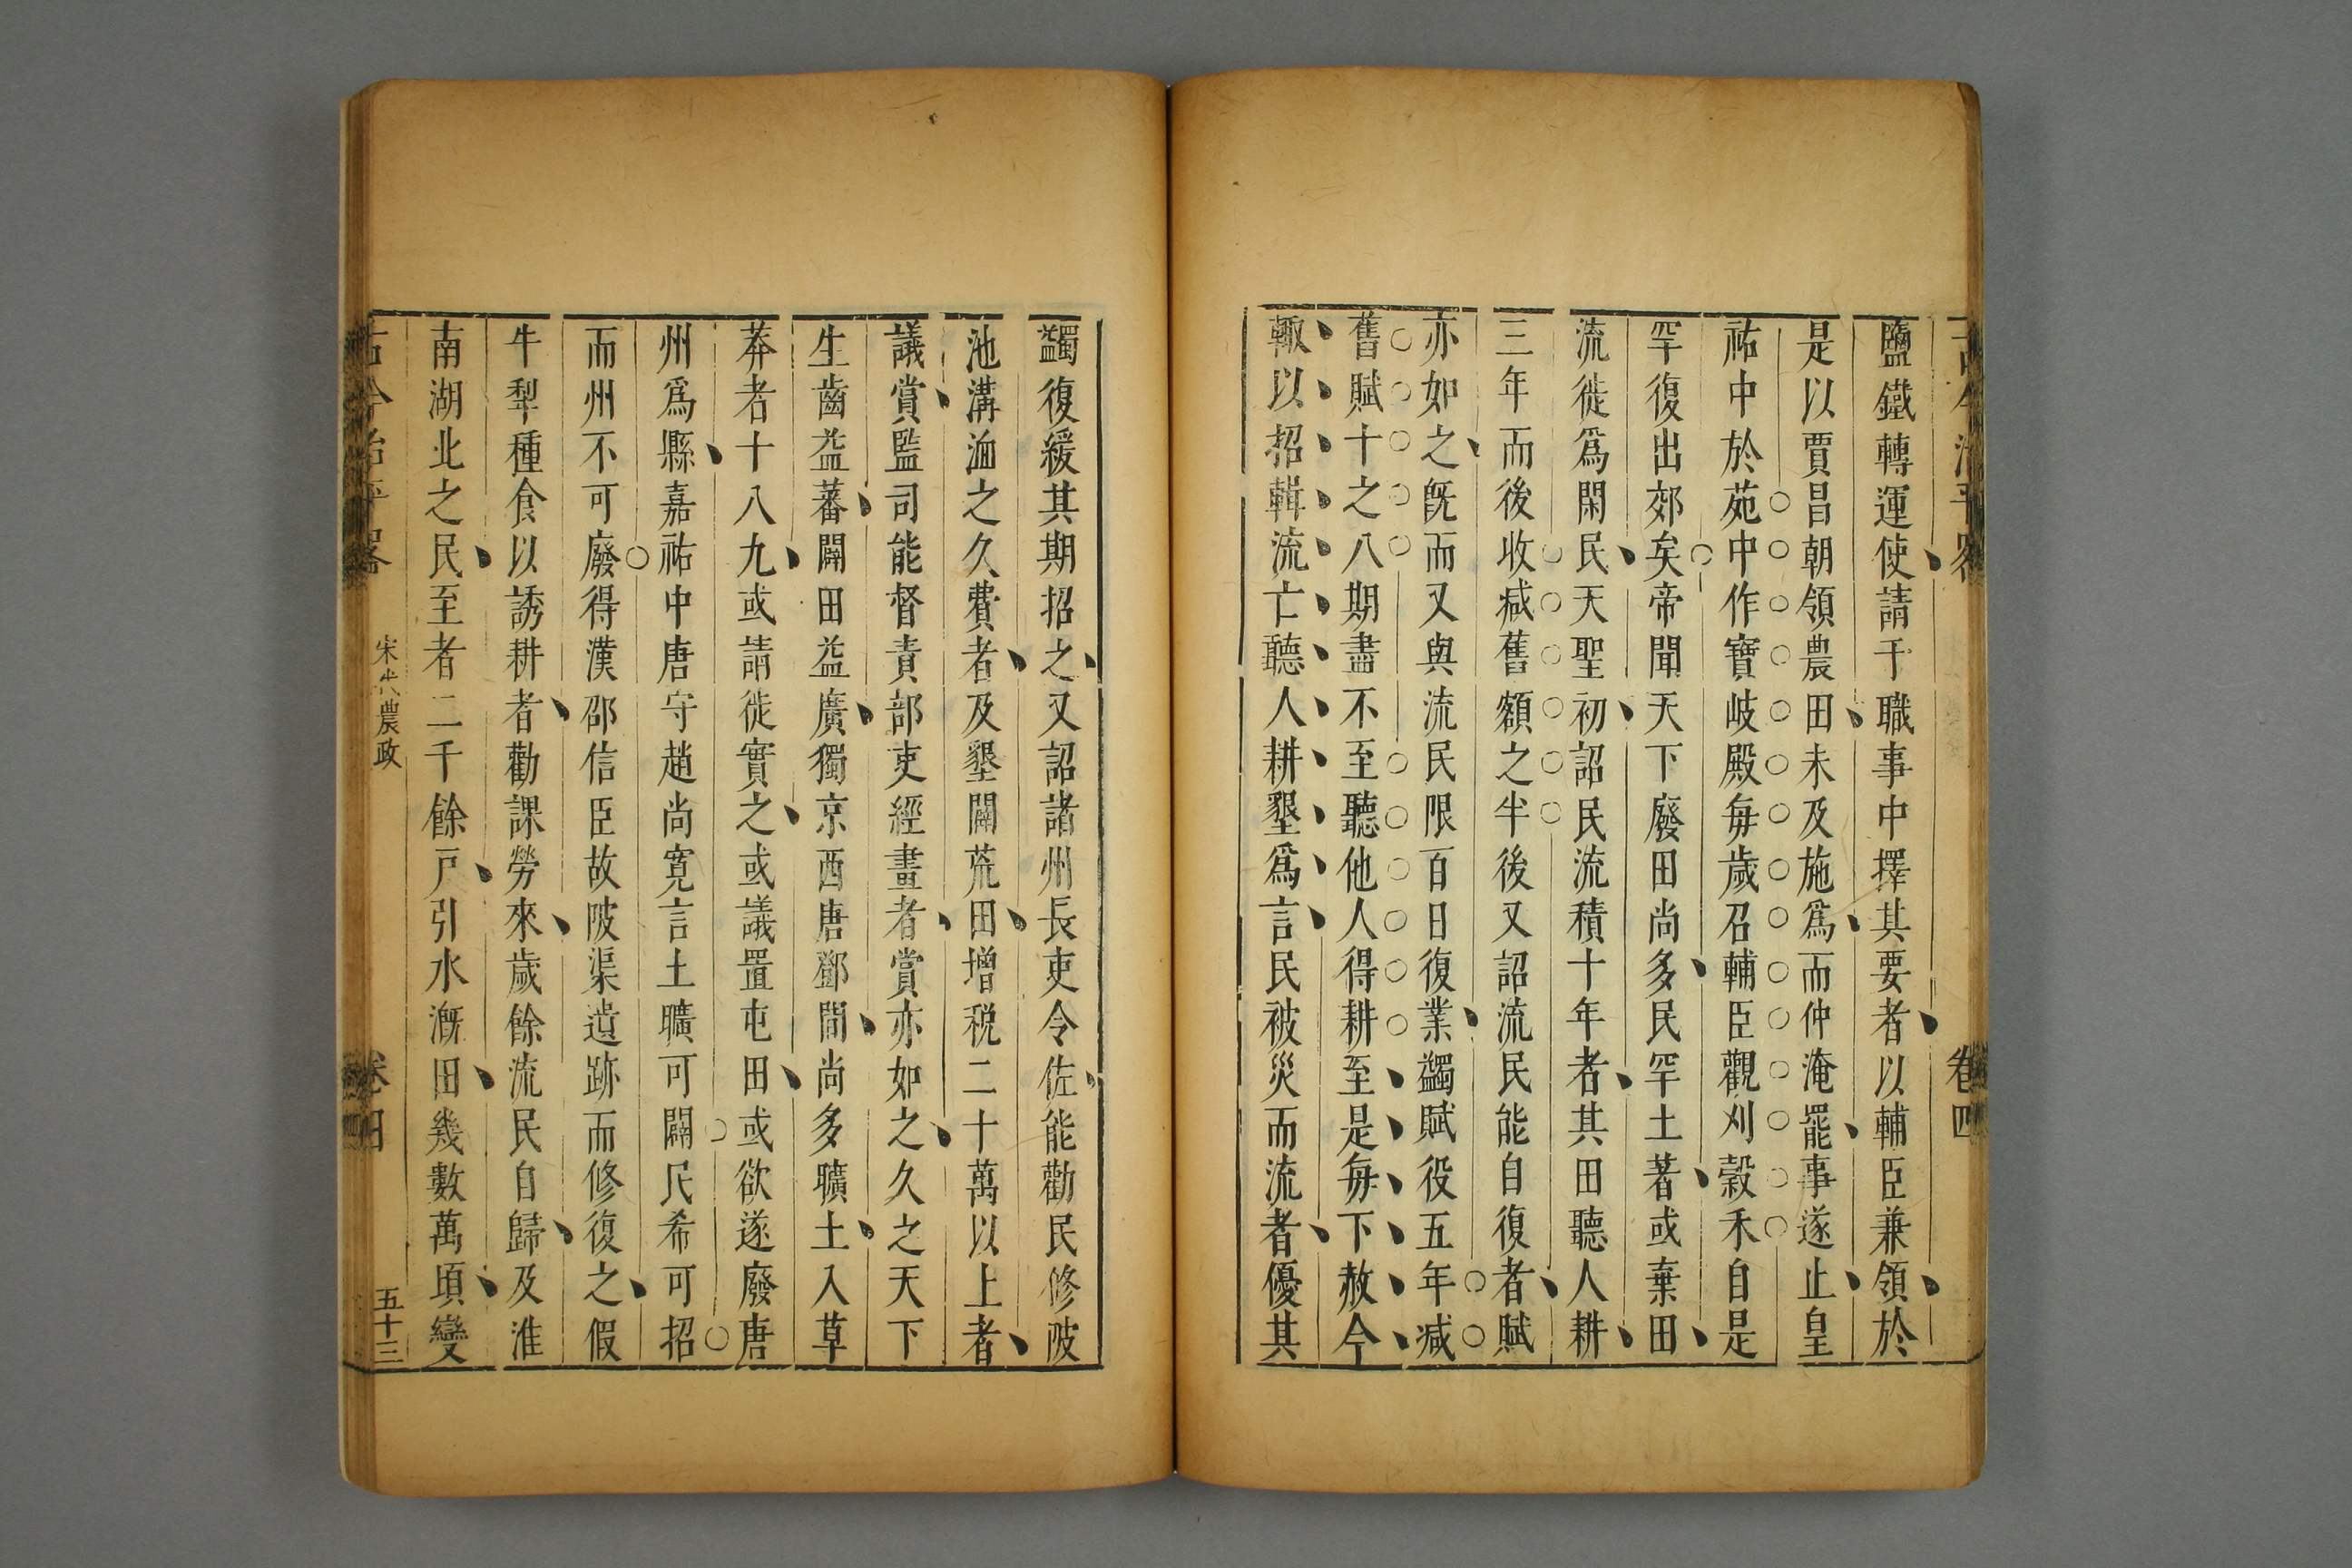 古今治平畧 卷四
鹽鐵轉運使請于職事中擇其要者以輔臣兼領於
是以賈昌朝領農田未及施爲而仲淹罷事遂止皇
祐中於苑中作寶岐殿每歲召輔臣觀刈穀禾自是
罕復出郊矣帝聞天下廢田尚多民罕土著或棄田
流徙爲閑民天聖初詔民流積十年者其田聽人耕
三年而後收減舊額之半後又詔流民能自復者賦
亦如之旣而又與流民限百日復業蠲賦役五年減
舊賦十之八期盡不至聽他人得耕至是每下赦令
輙以招輯流亡聽人耕墾爲言民被災而流者優其
蠲復緩其期招之又詔諸州長吏令佐能勸民修陂
池溝洫之久費者及墾闢荒田增税二十萬以上者
議賞監司能督責部吏經畫者賞亦如之久之天下
生齒益蕃闢田益廣獨京西唐鄧間尚多曠土入草
莽者十八九或請徙實之或議置屯田或欲遂廢唐
州爲縣嘉祐中唐守趙尚寬言土曠可闢民希可招
而州不可廢得漢邵信臣故陂渠遺跡而修復之假
牛犁種食以誘耕者勸課勞來歲餘流民自歸及淮
南湖北之民至者二千餘戸引水漑田幾數萬頃變
古今治平畧 宋代農政 卷四 五十三